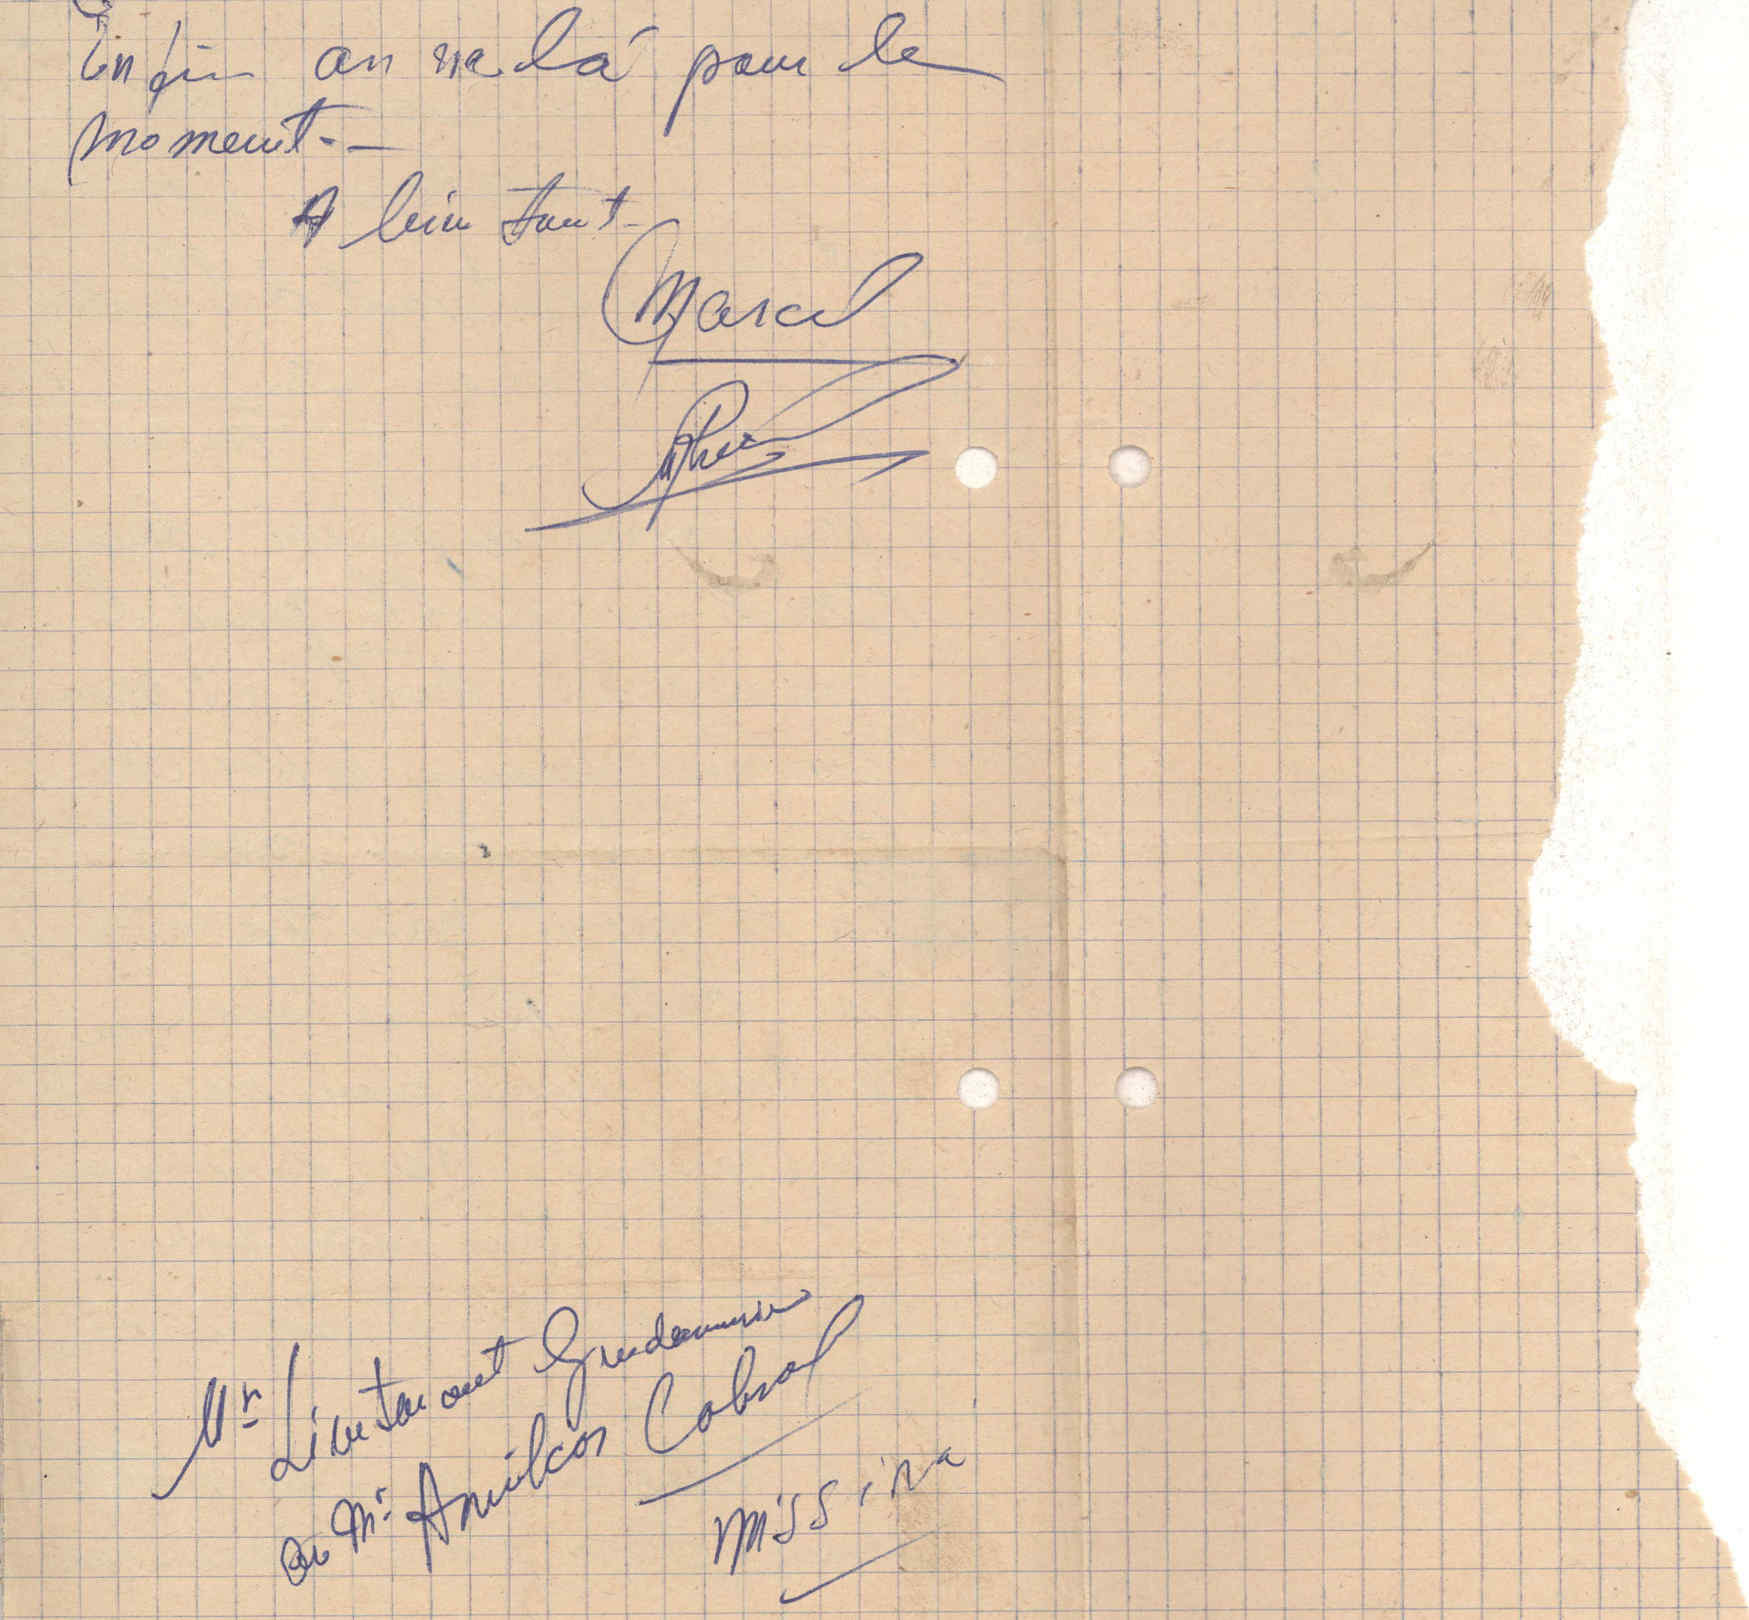 Enfin on va là pour le
moment. -
A bien taut.
Marcel
Mr Lieutenant
Ou Mr. Amilcar Cabral
Missira